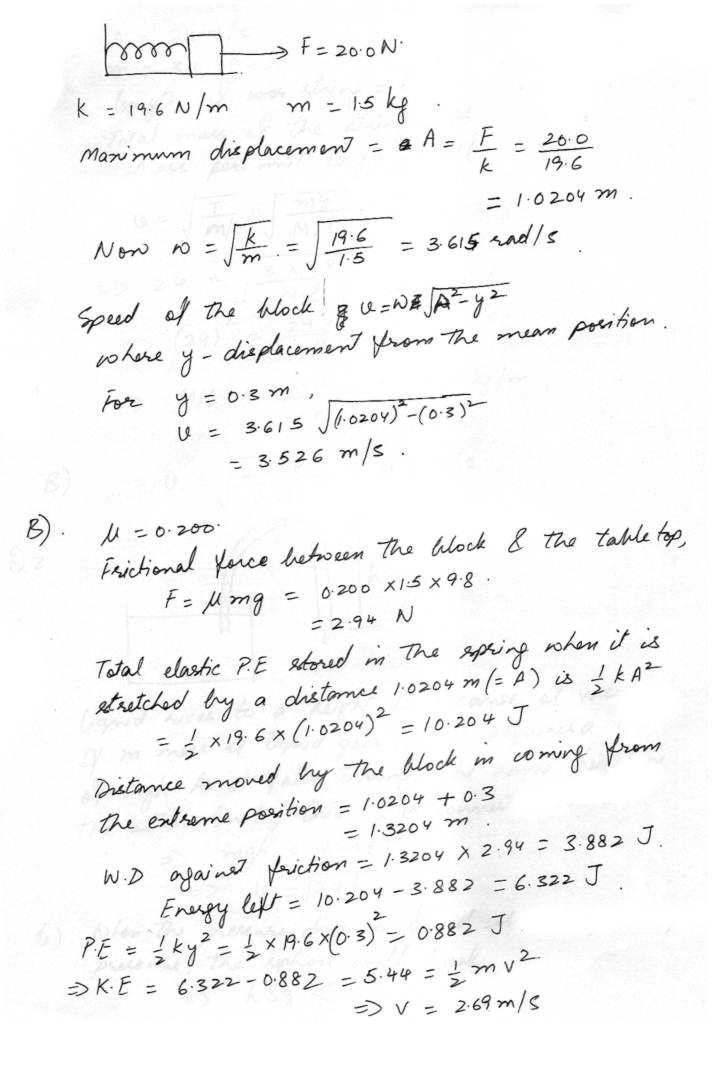 F = 20.0 N.
K = 19.6 N/m m = 1.5 kg.
Maximum displacement = A = F/k = 20.0/19.6
= 1.0204 m.
Now ω = √(k/m) = √(19.6/1.5) = 3.615 rad/s.
Speed of the block v = ω√(A²-y²)
where y - displacement from the mean position.
For y = 0.3 m,
v = 3.615 √((1.0204)²-(0.3)²)
= 3.526 m/s.
B). μ = 0.200.
Frictional force between the block & the table top,
F = μmg = 0.200 × 1.5 × 9.8.
= 2.94 N
Total elastic P.E stored in the spring when it is
stretched by a distance 1.0204 m (= A) is ½ k A²
= ½ × 19.6 × (1.0204)² = 10.204 J
Distance moved by the block in coming from
the extreme position = 1.0204 + 0.3
= 1.3204 m.
W.D against friction = 1.3204 × 2.94 = 3.882 J.
Energy left = 10.204 - 3.882 = 6.322 J.
P.E = ½ky² = ½ × 19.6 × (0.3)² = 0.882 J
⇒ K.E = 6.322 - 0.882 = 5.44 = ½ m v²
⇒ v = 2.69 m/s